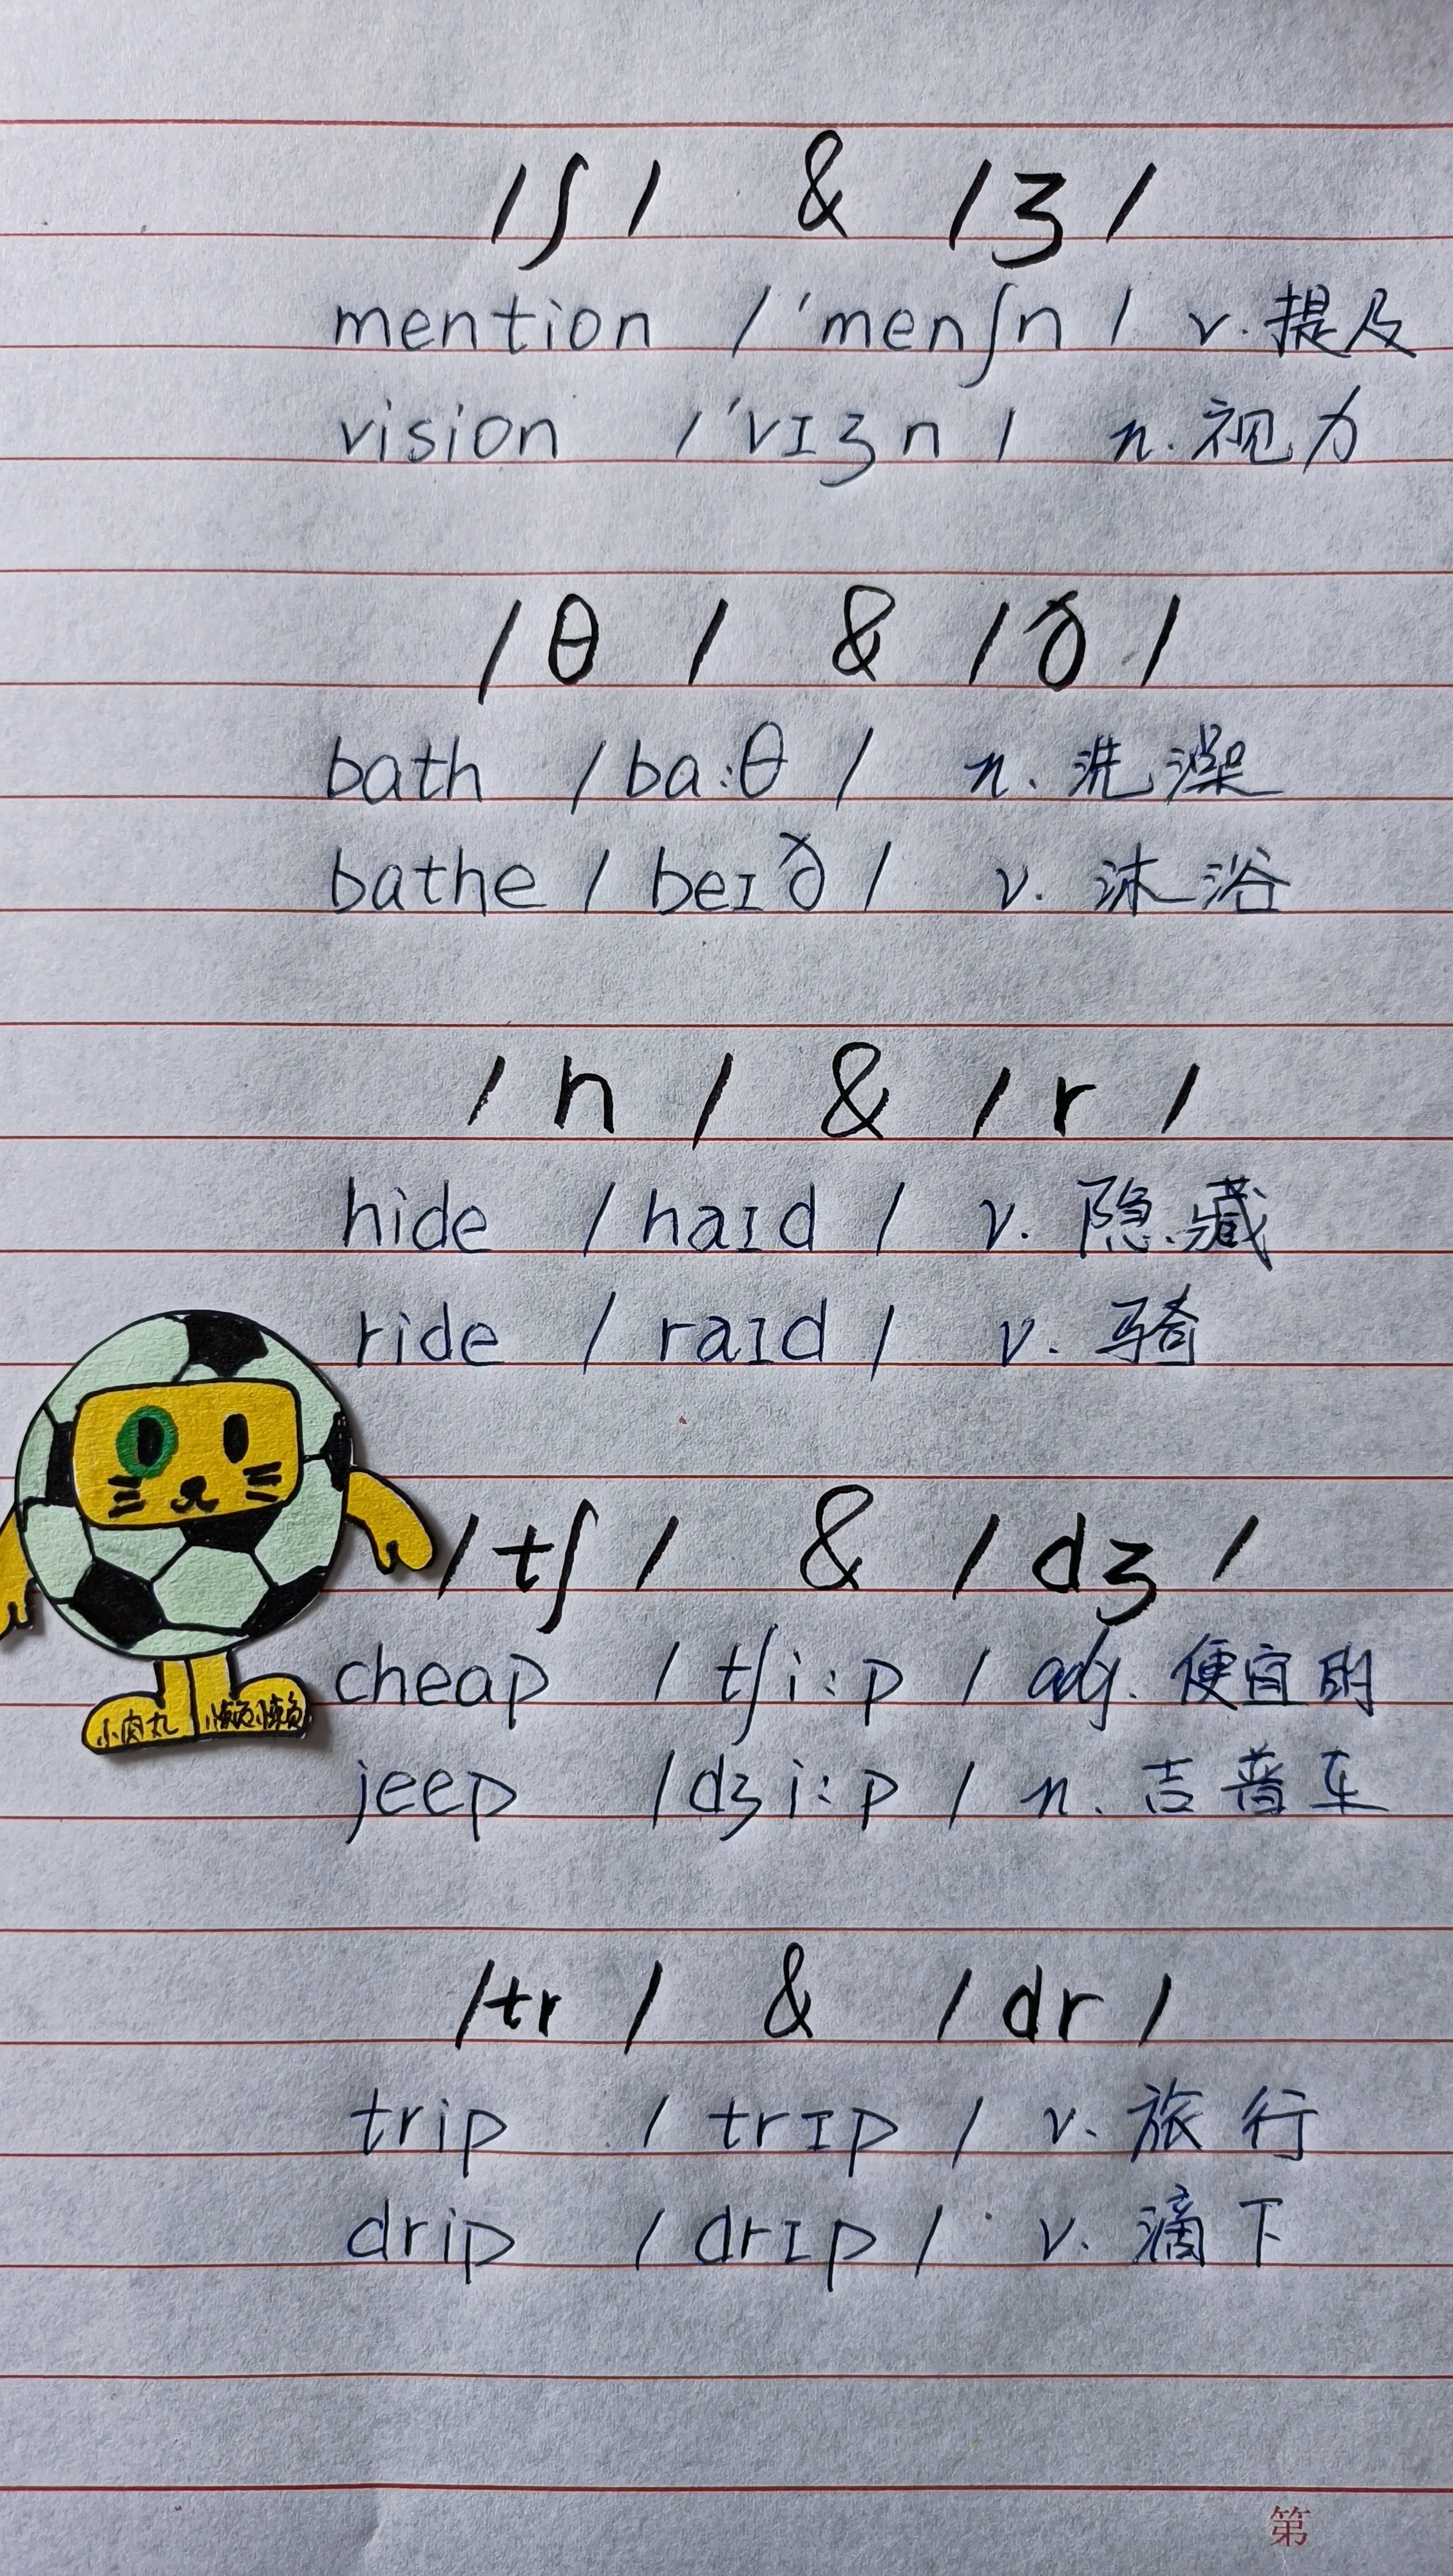 /ʃ/ & /ʒ/
mention /'menʃn/ v. 提及
vision /'vɪʒn/ n. 视力
/θ/ & /ð/
bath /ba:θ/ n. 洗澡
bathe /beɪð/ v. 沐浴
/h/ & /r/
hide /haɪd/ v. 隐藏
ride /raɪd/ v. 骑
/tʃ/ & /dʒ/
cheap /tʃi:p/ adj. 便宜的
小肉丸 懒懒
jeep /dʒi:p/ n. 吉普车
/tr/ & /dr/
trip /trɪp/ v. 旅行
drip /drɪp/ v. 滴下
第